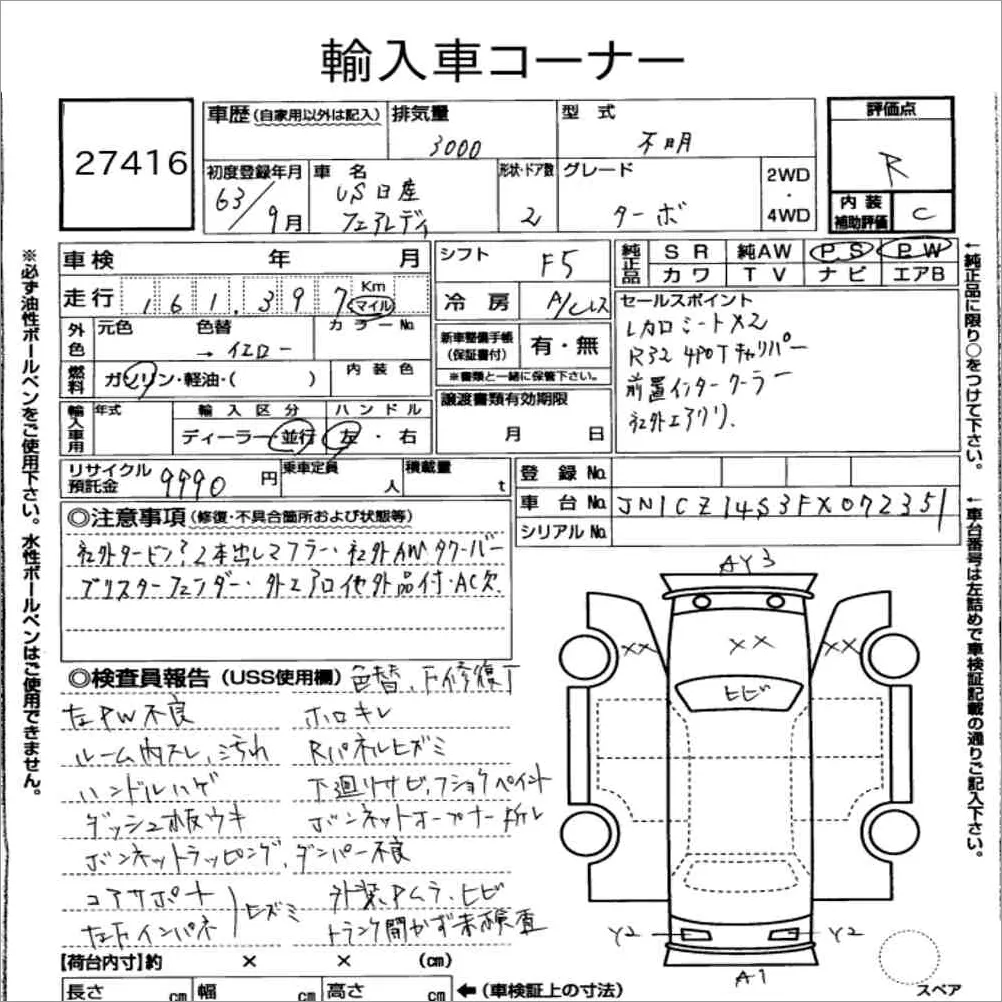 輸入車コーナー
27416
車歴 (自家用以外は記入) 排気量 3000
型式 不明
評価点 R
内装補助評価 C
初度登録年月 63/9月
車名 US日産 フェアレディ
形状・ドア数 2
グレード ターボ
2WD・4WD
車検 年 月
シフト F5
純正品 SR 純AW PS PW
カワ TV ナビ エアB
走行 161,397 Km マイル
冷房 A/Cレス
セールスポイント
レカロシート×2
R32 4POTキャリパー
前置インタークーラー
社外エアクリ.
外色 元色 色替 →イエロー カラーNo.
新車整備手帳(保証書付) 有・無
※書類と一緒に保管下さい。
燃料 ガソリン・軽油・( ) 内装色
譲渡書類有効期限
月 日
輸入車用 年式 輸入区分 ハンドル
ディーラー・並行 左・右
リサイクル預託金 9990円 乗車定員 人 積載量 t
登録No.
車台No. JN1CZ14S3FX072351
シリアルNo.
◎注意事項 (修復・不具合箇所および状態等)
社外タービン?2本出しマフラー・社外AW.タワーバー
ブリスターフェンダー・外エアロ他外品付・AC欠.
◎検査員報告 (USS使用欄) 色替、F修復
左PW不良 ホロキレ
ルーム内スレ、汚れ Rパネルヒズミ
ハンドルハゲ 下廻りサビ、フショクペイント
ダッシュ板ウキ ボンネットオープナー
ボンネットラッピング、ダンパー不良
コアサポート
左Fインパネ ヒズミ
外装、Pムラ、ヒビ
トランク開かず未検査
AY3
×× ×× ××
ヒビ
Y2 Y2
A1
スペア
【荷台内寸】約 × × (cm)
長さ cm 幅 cm 高さ cm ←(車検証上の寸法)
※必ず油性ボールペンをご使用下さい。水性ボールペンはご使用できません。
←純正品に限り○をつけて下さい。
←車台番号は左詰めで車検証記載の通りご記入下さい。